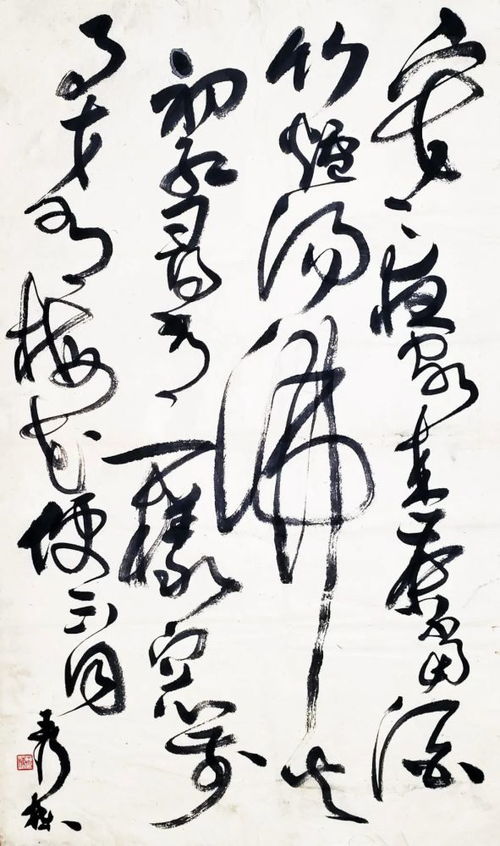 寒夜客來茶當酒
竹爐湯沸火
初紅尋常一樣窗前
月才有梅花便不同